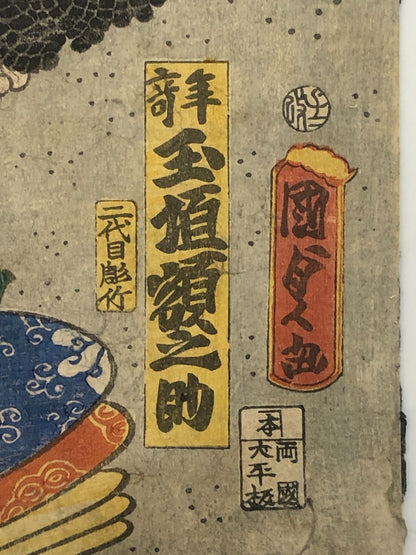 國貞画
年寄
玉垣額之助
二代目彫竹
本
両國
大平板